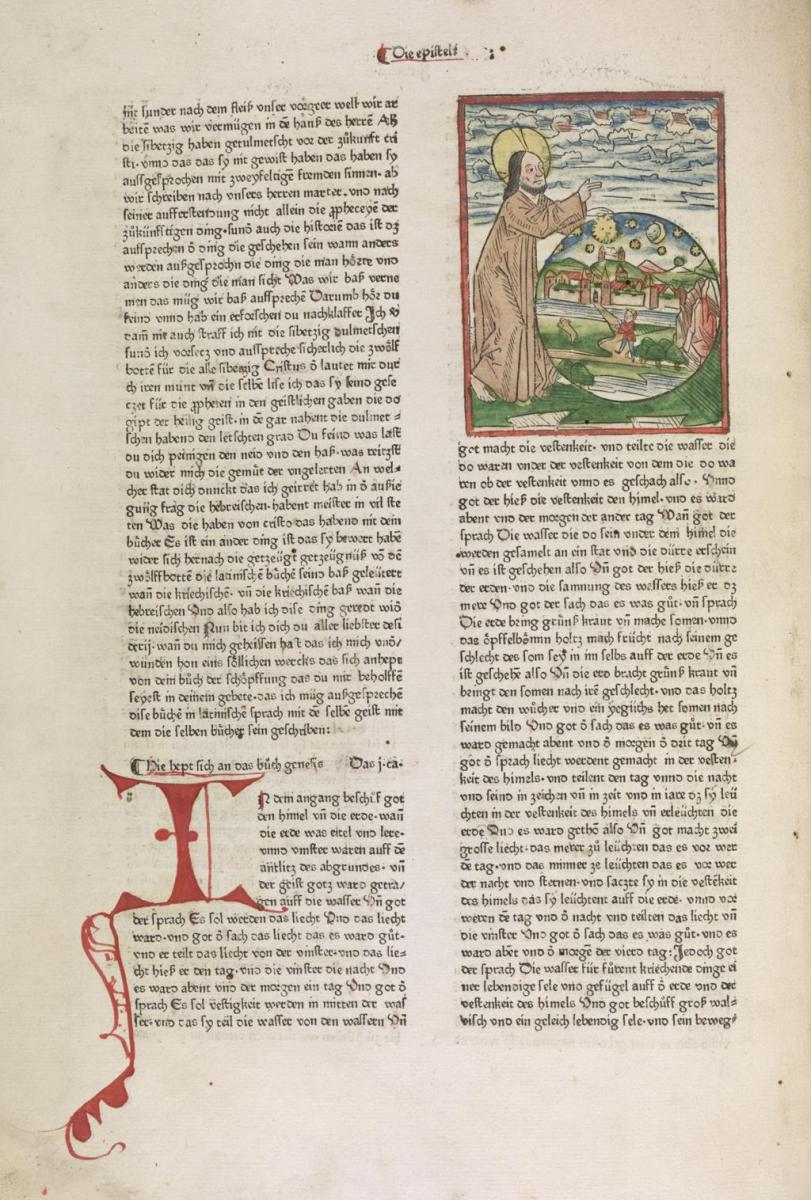 Die epistel
sunder nach dem fleiß vnser vorgeer well wir ar
beitē was wir vermügen in dē hauß des herrē Aß
die sibetzig haben getulmetscht vor der zůkunfft cri
sti· vnno das das sy nit gewist haben das haben sy
außgesprochen mit zweyfeltigē fremden sinnen· ab
wir schreiben nach vnsers herren marter· vnd nach
seiner aufferstendung nicht allein die propheceyē der
zůkünfftigen ding· sunō auch die historiē das ist dz
aussprechen ō ding die geschehen sein wann anders
werden außgesprochn die ding die man hörte vnd
anders die ding die man sicht Was wir baß verne
men das müg wir baß aussprechē Darumb hör du
feind vnno hab ein erforschen du nachklaffer Ich
nit auch straff ich nit die sibetzig dulmetschen
sunō ich vorsetz vnd ausspreche sicherlich die zwölf
botten für die alle sibetzig Cristus ō lautet mir dur
ch iren munt vñ die selbe lise ich das sy seind gese
czet für die propheten in den geistlichen gaben die do
gipt der heilig geist· in dē gar nahent die dulmet
schen habend den letschten grad Du feind was last
du dich peinigen den neid vnd den haß· was reitzst
du wider mich die gemüt der vngelerten An wel
cher stat dich dunckt das ich geirret hab in ō außle
gung frag die hebreischen· habent meister in vil ste
ten Was die haben von cristo das habend nit dein
bücher Es ist ein ander ding ist das sy bewert habē
wider sich hernach die getzeügt getzeügnuß vō dē
zwölffbotten die latinischē büchē seind baß geleütert
wañ die kriechischē· vñ die kriechischē baß wañ die
hebreischen Vnd also hab ich dise ding geredt wid
die neidischen Nun bit ich dich du aller liebster desi
derij· wañ du mich geheissen hast das ich mich vnd/
wunden hon eins söllichen wercks das sich anhept
von dem bůch der schöpffung das du mir beholffē
seyest in deinem gebete· das ich müg außgesprechē
dise büchē in latinischē sprach mit dē selbē geist mit
dem die selben bücher sein geschriben:
Hie hept sich an das bůch genesis Das j· ca·
IN dem angang beschůf got
den himel vñ die erde· wañ
die erde was eitel vnd lere·
vnno vinster waren auff dē
antlitz des abgrundes· vñ
der geist gotz ward getra/
gen auff die wasser Vñ got
der sprach Es sol werden das liecht Vnd das liecht
ward· vnd got ō sach das liecht das es ward gůt·
vnd er teilt das liecht von der vinster· vnd das lie
cht hieß er den tag· vnd die vinster die nacht Vnd
es ward abent vnd der morgen ein tag Vnd got ō
sprach Es sol vestigkeit werden in mitten der was
ser· vnd das sy teil die wasser von den wassern Vñ
got macht die vestenkeit· vnd teilte die wasser die
do waren vnder der vestenkeit von dem die do wa
ren ob der vestenkeit vnno es geschach also· Vnno
got der hieß die vestenkeit den himel· vnd es ward
abent vnd der morgen der ander tag Wañ got der
sprach Die wasser die do sein vnder dem himel die
werden gesamelt an ein stat vnd die dürre erschein
vñ es ist geschehen also Vñ got der hieß die dürre
der erden· vnd die samnung des wassers hieß er dz
mere Vnd got der sach das es was gůt· vñ sprach
Die erde bring grünß kraut vñ mache somen· vnno
das öpffelbömin holtz mach frücht nach seinem ge
schlecht des som sey in im selbs auff der erde Vñ es
ist geschehē also Vñ die erd bracht grünß kraut vñ
bringt den somen nach irē geschlecht· vnd das holtz
macht den wůcher vnd ein yeglichs het somen nach
seinem bild Vnd got ō sach das es was gůt· vñ es
ward gemacht abent vnd ō morgen ō drit tag Vñ
got ō sprach liecht werdent gemacht in der vesten
keit des himels· vnd teilent den tag vnno die nacht
vnd seind in zeichen vñ in zeit vnd in iare dz sy leü
chten in der vestenkeit des himels vñ erleüchten die
erde Vnd es ward gethō also Vñ got macht zwei
grosse liecht· das merer zů leüchten das es vor wer
dē tag· vnd das minner ze leüchten das es vor wer
der nacht vnd sternen· vnd saczte sy in die vestēkeit
des himels das sy leüchtent auff die erde· vnno vor
weren dē tag vnd ō nacht vnd teilten das liecht vñ
die vinster Vnd got ō sach das es was gůt· vnd es
ward abēt vnd ō morgē der vierd tag: Jedoch got
der sprach Die wasser für fürent kriechende dinge ei
ner lebendige sele vnd gefügel auff ō erde vnd der
vestenkeit des himels Vnd got beschůff groß wal
visch vnd ein geleich lebendig sele· vnd sein beweg